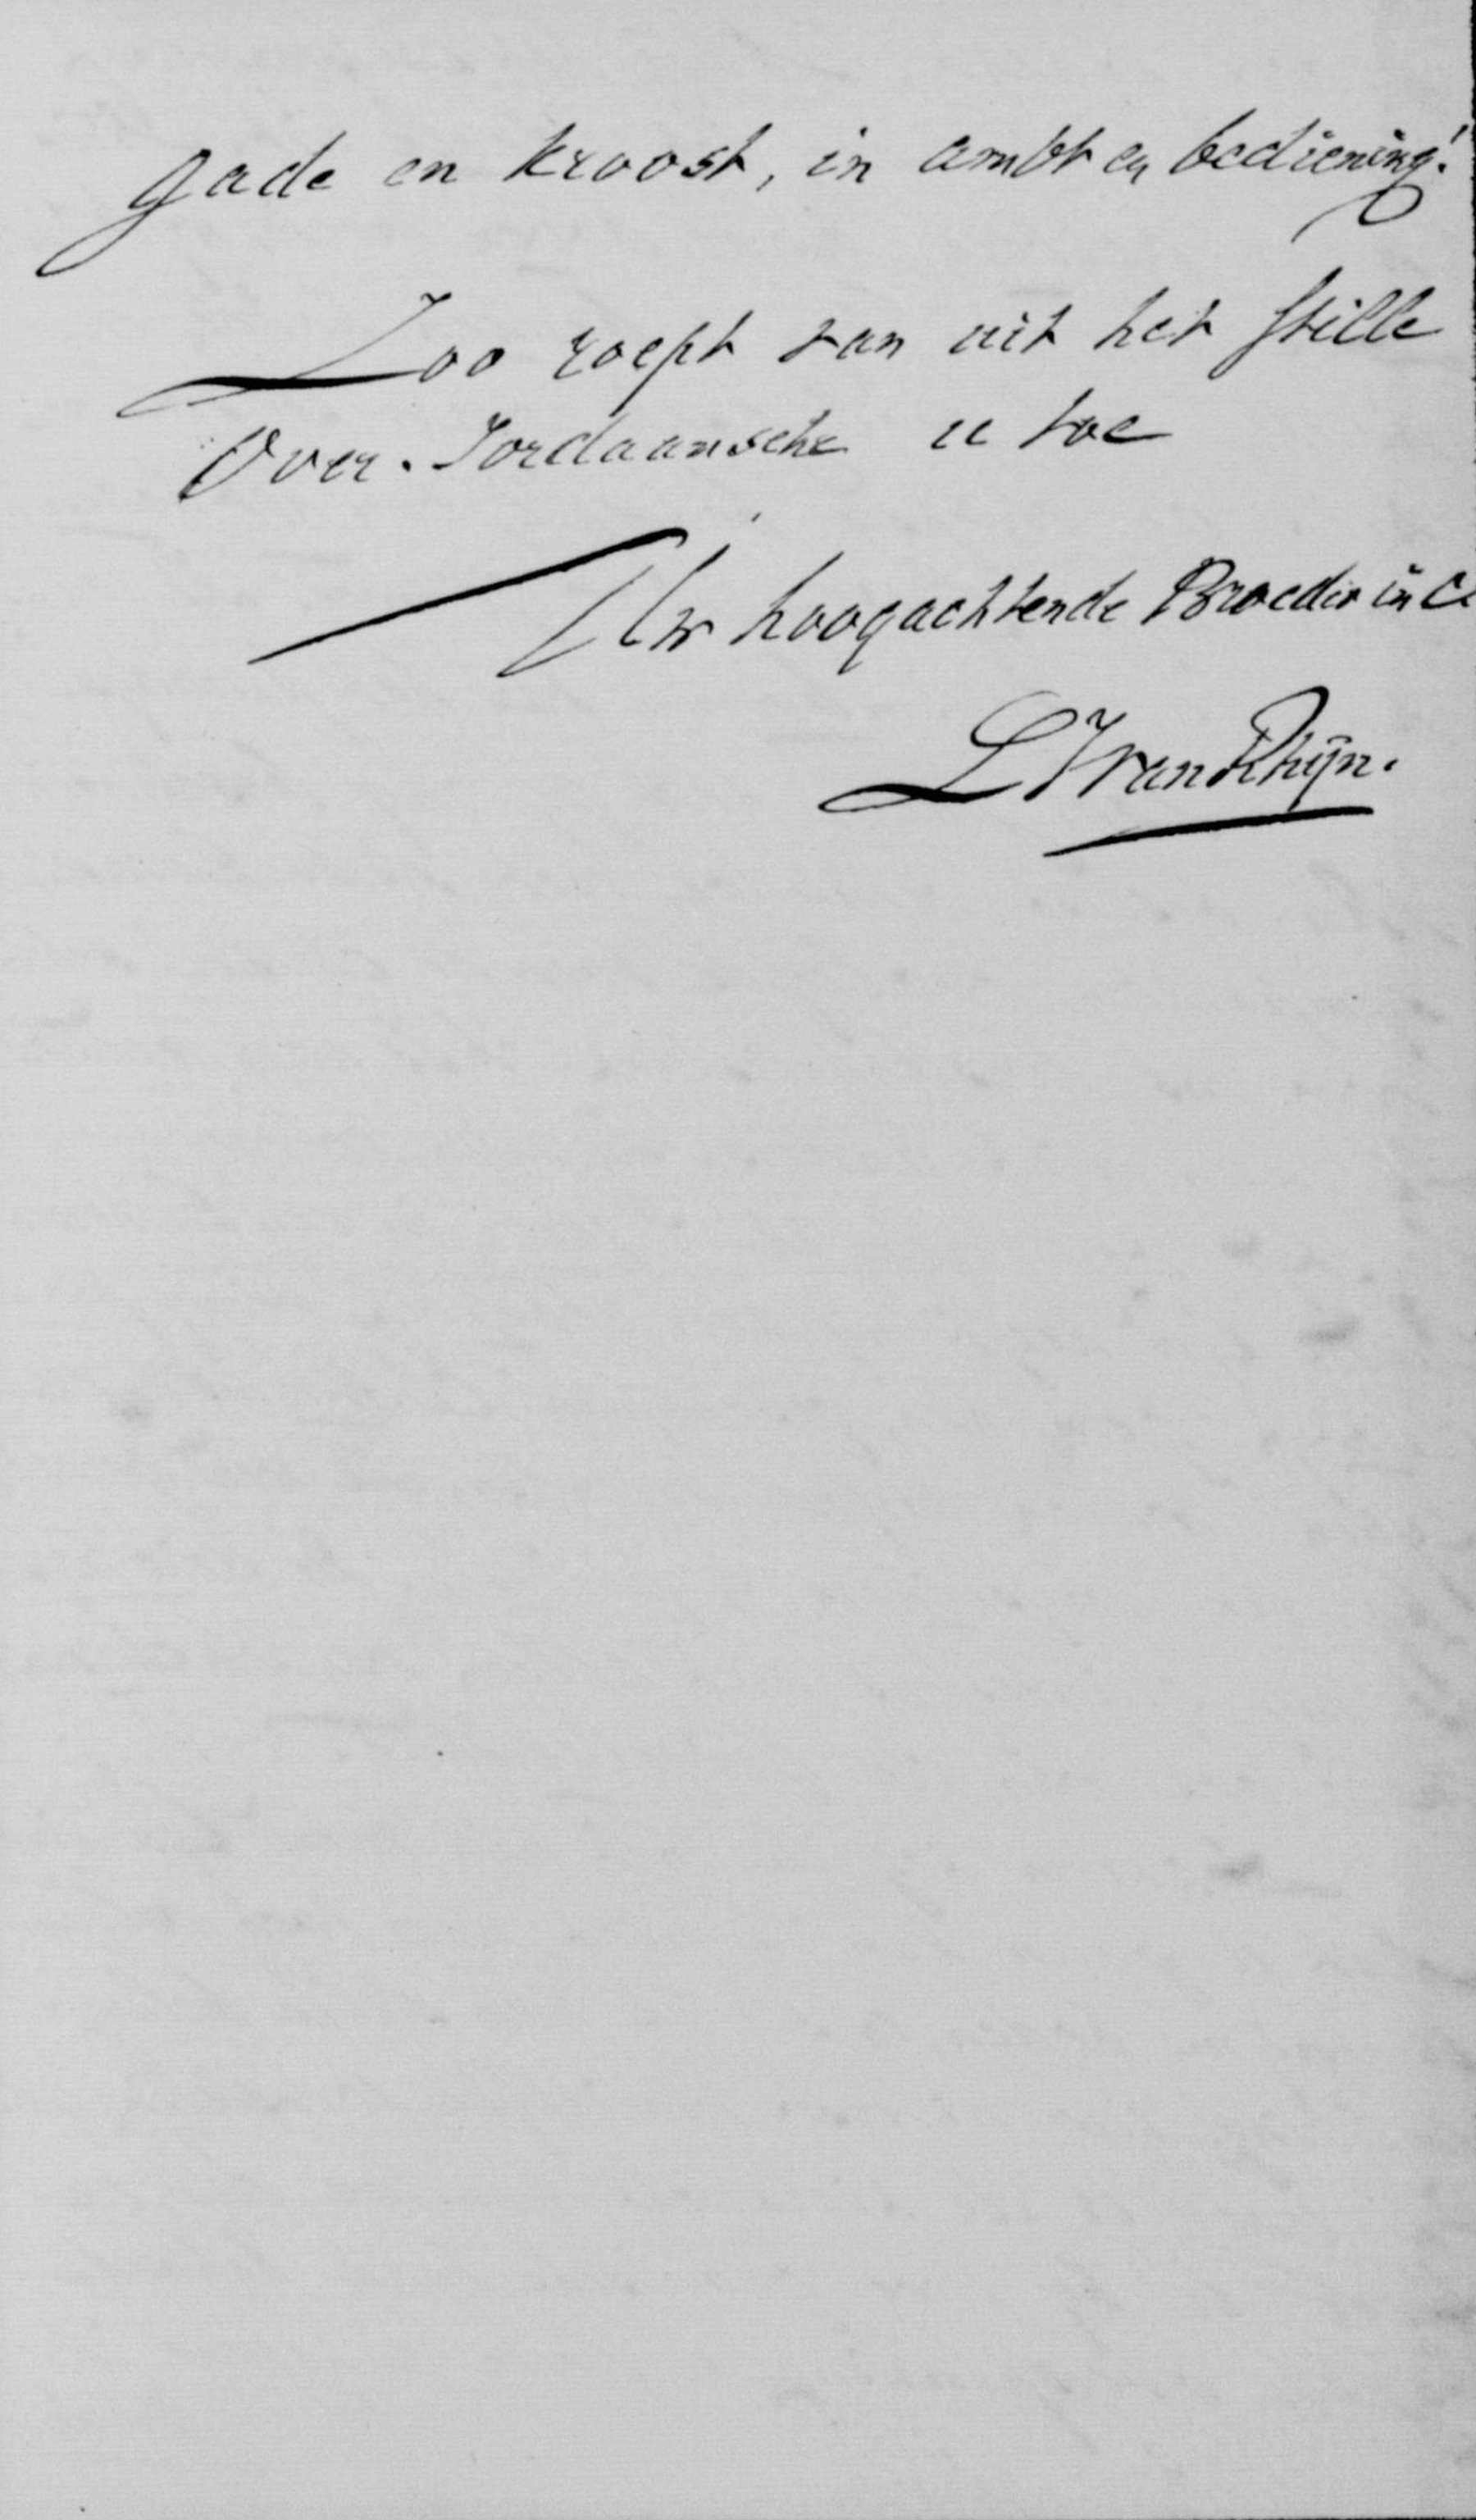 gade en kroost, in ambt en bediening!
Zoo roept van uit het stille
Over-Jordaansche u toe
Uw hoogachtende Broeder in C.
L J van Rhijn.